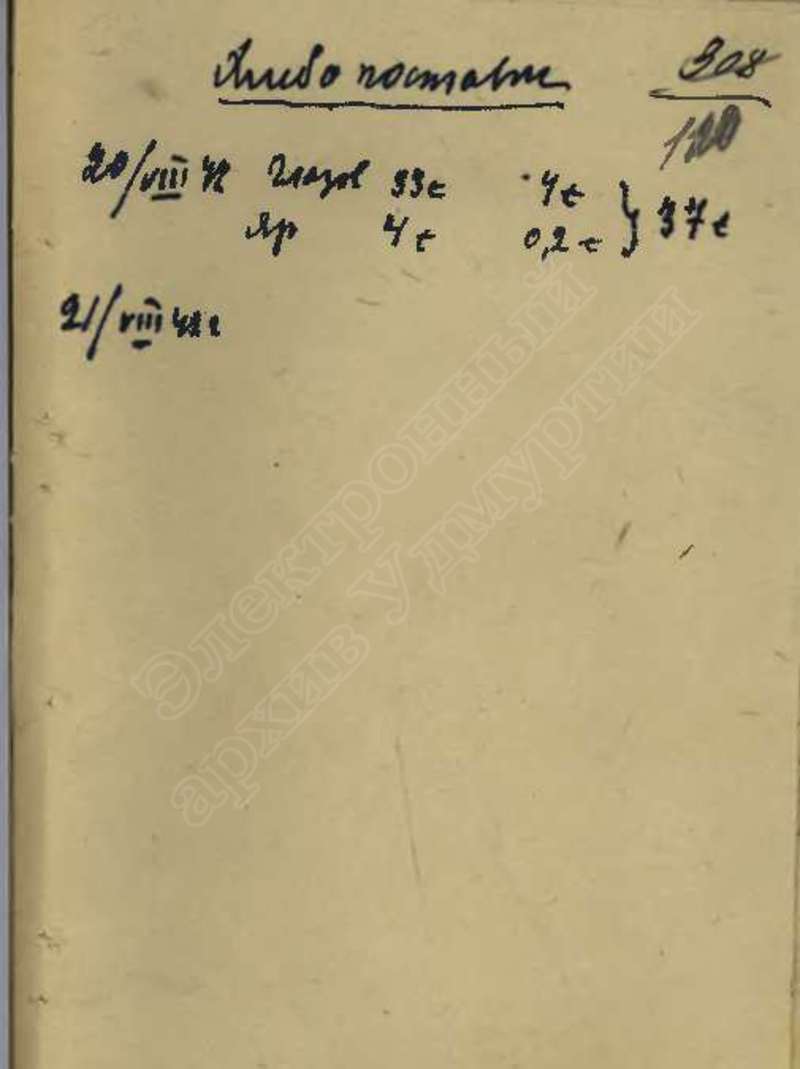 Хлебо поставк 308
120
20/VIII 42 Глазов 33 т 4 т } 37 т
Яр 4 т 0,2 т
21/VIII 42 г
Электронный
архив Удмуртии